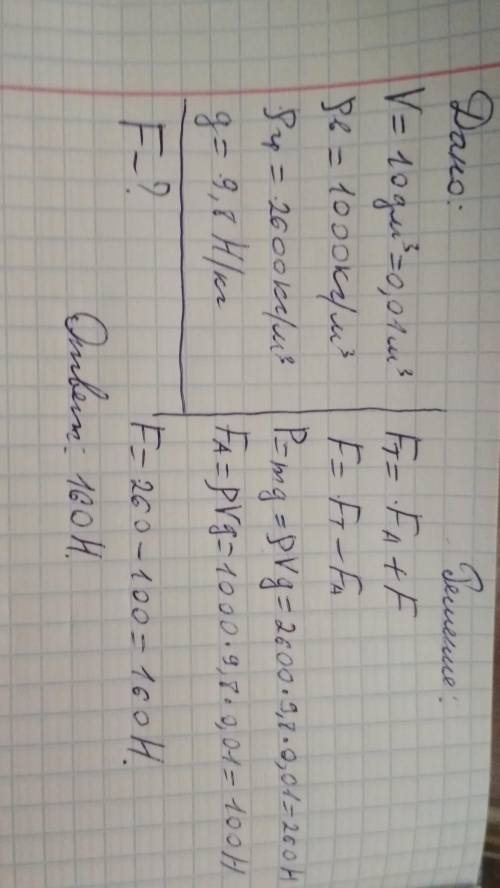 Дано:
V = 10 дм³ = 0,01 м³
ρв = 1000 кг/м³
ρч = 2600 кг/м³
g = 9,8 Н/кг
F - ?
Решение:
Fт = FA + F
F = Fт - FA
P = mg = ρVg = 2600·9,8·0,01 = 260 Н
FA = ρVg = 1000·9,8·0,01 = 100 Н
F = 260 - 100 = 160 Н.
Ответ: 160 Н.